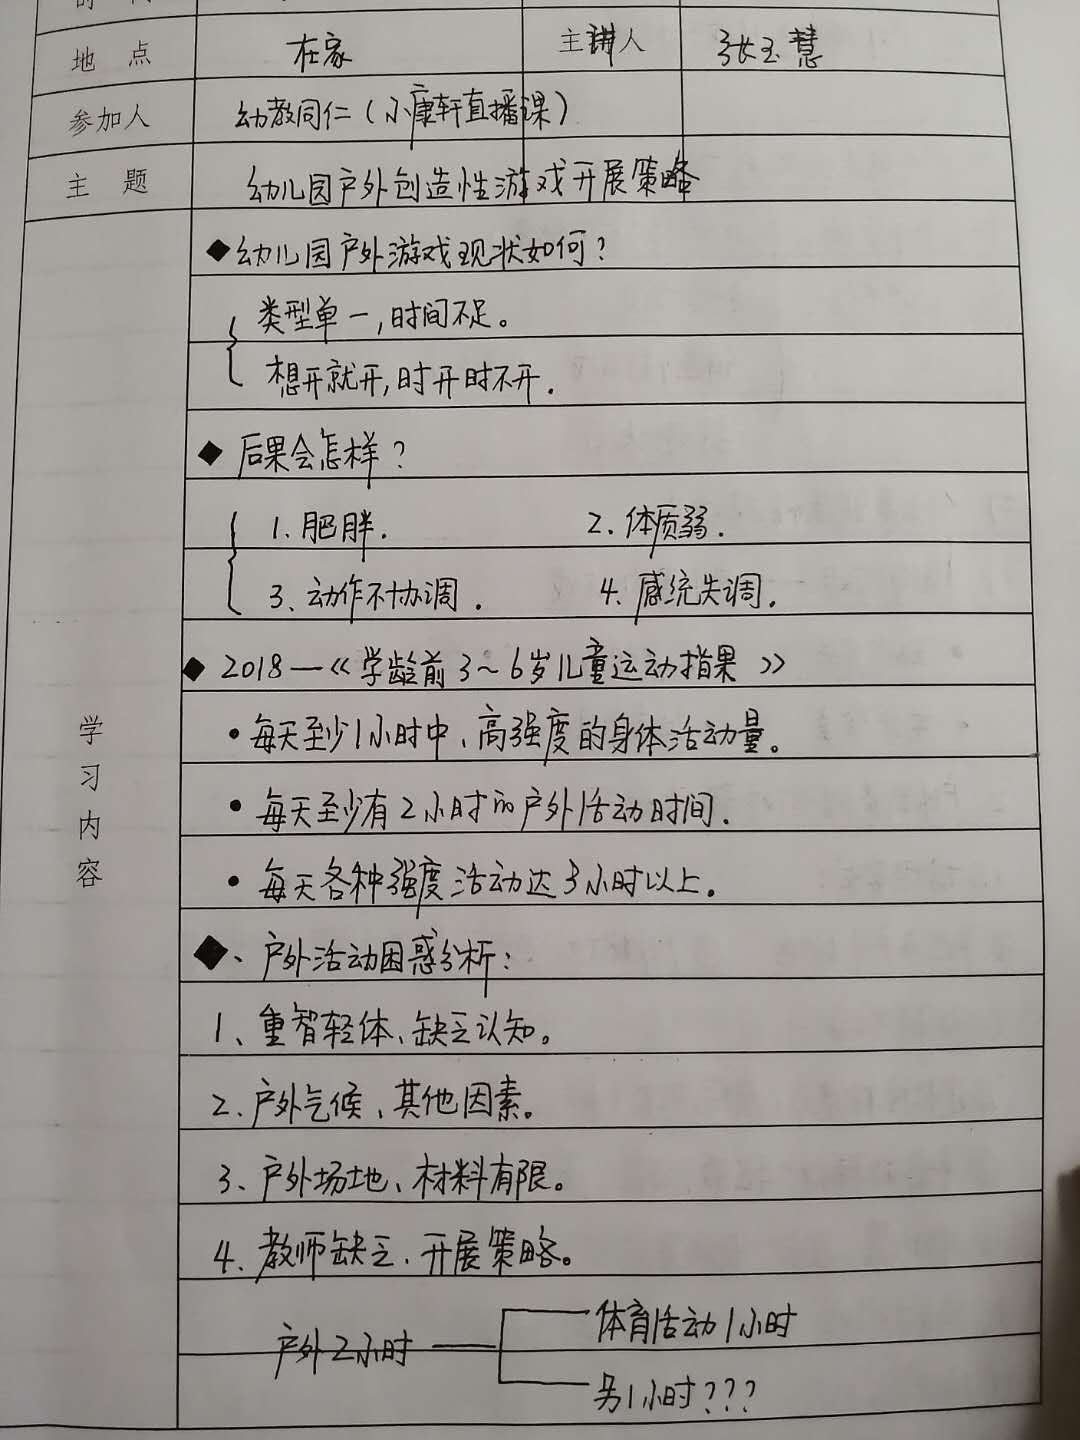 地 点 在家 主讲人 张玉慧
参加人 幼教同仁（小康轩直播课）
主 题 幼儿园户外创造性游戏开展策略
学习内容
◆幼儿园户外游戏现状如何？
类型单一,时间不足。
想开就开,时开时不开.
◆ 后果会怎样？
1. 肥胖. 2. 体质弱.
3、动作不协调. 4. 感统失调.
◆ 2018—《学龄前3~6岁儿童运动指果》
• 每天至少1小时中、高强度的身体活动量。
• 每天至少有2小时的户外活动时间.
• 每天各种强度活动达3小时以上.
◆、户外活动困惑分析:
1、重智轻体、缺乏认知。
2.户外气候、其他因素。
3、户外场地、材料有限。
4.教师缺乏.开展策略。
户外2小时
体育活动1小时
另1小时???